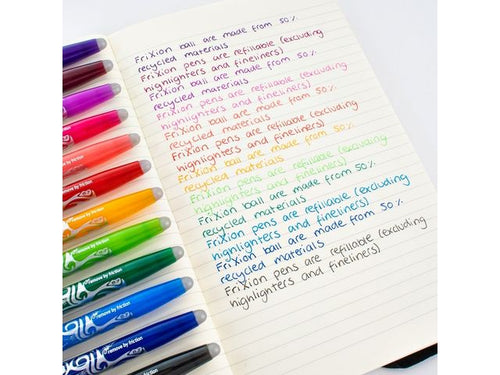 FriXion ball are made from 50%
recycled materials
FriXion pens are refillable (excluding
highlighters and fineliners)
FriXion ball are made from 50%
recycled materials
FriXion pens are refillable (excluding
highlighters and fineliners)
FriXion ball are made from 50%
recycled materials
FriXion pens are refillable (excluding
highlighters and fineliners)
FriXion ball are made from 50%
recycled materials
FriXion pens are refillable (excluding
highlighters and fineliners)
FriXion ball are made from 50%
recycled materials
FriXion pens are refillable (excluding
highlighters and fineliners)
FriXion ball are made from 50%
recycled materials
FriXion pens are refillable (excluding
highlighters and fineliners)
remove by friction
remove by friction
remove by friction
remove by friction
remove by friction
remove by friction